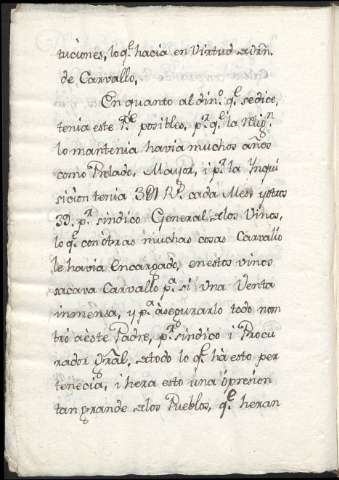 tuciones, lo q.e hacia en Virtud de orn.
de Carvallo,
En quanto al din.o q.e se dice,
tenia este P.e posible, p.r q.e la relig.n
lo mantenia havia muchos años
como Prelado, Mayor, i p.r la Ynqui
sicion tenia 301 R.s cada Mes, y otros
30. p.r sindico General de los Vinos,
lo q.e con otras muchas cosas Carvallo
le havia encargado, en estos vinos
sacava Carvallo p.a si una Venta
inmensa, y p.a asegurarlo todo nom
tró a este Padre, p.r sindico i Procu
rador Gral, de todo lo q.e ha esto per
tenecia, i hera esto una opresion
tan grande de los Pueblos, q.e heran